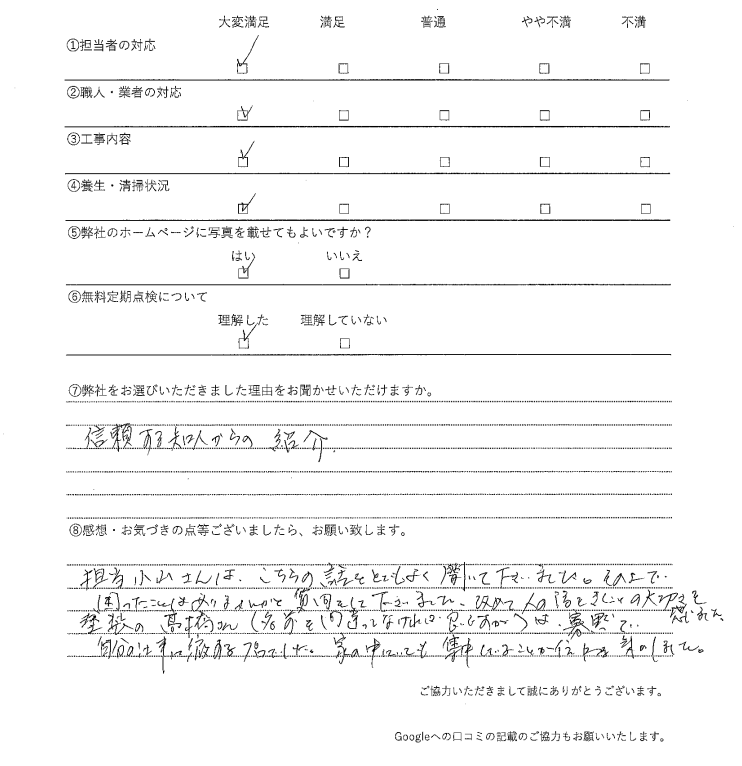 大変満足 満足 普通 やや不満 不満
①担当者の対応
②職人・業者の対応
③工事内容
④養生・清掃状況
⑤弊社のホームページに写真を載せてもよいですか？
はい いいえ
⑥無料定期点検について
理解した 理解していない
⑦弊社をお選びいただきました理由をお聞かせいただけますか。
信頼ある知人からの紹介.
⑧感想・お気づきの点等ございましたら、お願い致します。
担当小山さんは、こちらの話をとてもよく聞いて下さいました。その上で、
困ったことはありませんかと質問をして下さいまして、改めて人の話をきくことの大切さを
感じました
塗装の高橋さん(名前を間違ってなければ良いですが)は、寡黙で、
自分の仕事に徹する方でした。家の中にいても集中していることが
ご協力いただきまして誠にありがとうございます。
Googleへの口コミの記載のご協力もお願いいたします。